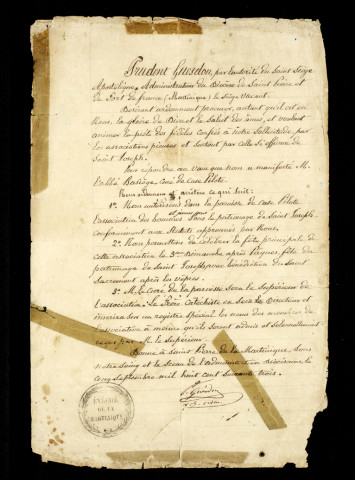 Prudent Guesdon, par l'autorité du Saint Siège
Apostolique, Administrateur du Diocèse de Saint Pierre et
de Fort de france (Martinique) le Siège Vacant.
Désirant ardemment procurer, autant qu'il est en
Nous, la gloire de Dieu et le Salut des âmes, et voulant
animer la piété des fidèles confiés à notre Sollicitude par
les associations pieuses et surtout par celle si efficace de
Saint Joseph.
Pour répondre au vœu que nous a manifesté M.
l'abbé curé de Case Pilote.
Nous ordonnons et ce qui suit:
1º Nous autorisons dans la paroisse de Case Pilote
l'association des hommes sous le patronage de Saint Joseph
conformément aux Statuts approuvés par Nous.
2º Nous permettons de célébrer la fête principale de
cette association le 3ème Dimanche après Pâques fête du
patronage de Saint Joseph bénédiction du Saint
Sacrement après les vêpres.
3º M. le Curé de la paroisse sera le Supérieur de
l'association. Le Frère Catéchiste en sera le Directeur et
inscrira sur un registre spécial les noms des membres de
l'association à mesure qu'ils sont admis et solennellement
reçus par M. le Supérieur.
Donné à Saint Pierre de la Martinique, sous
notre Seing et le Sceau de
cinq Septembre mil huit cent soixante trois.
Guesdon
EVÊCHÉ
DE LA
MARTINIQUE